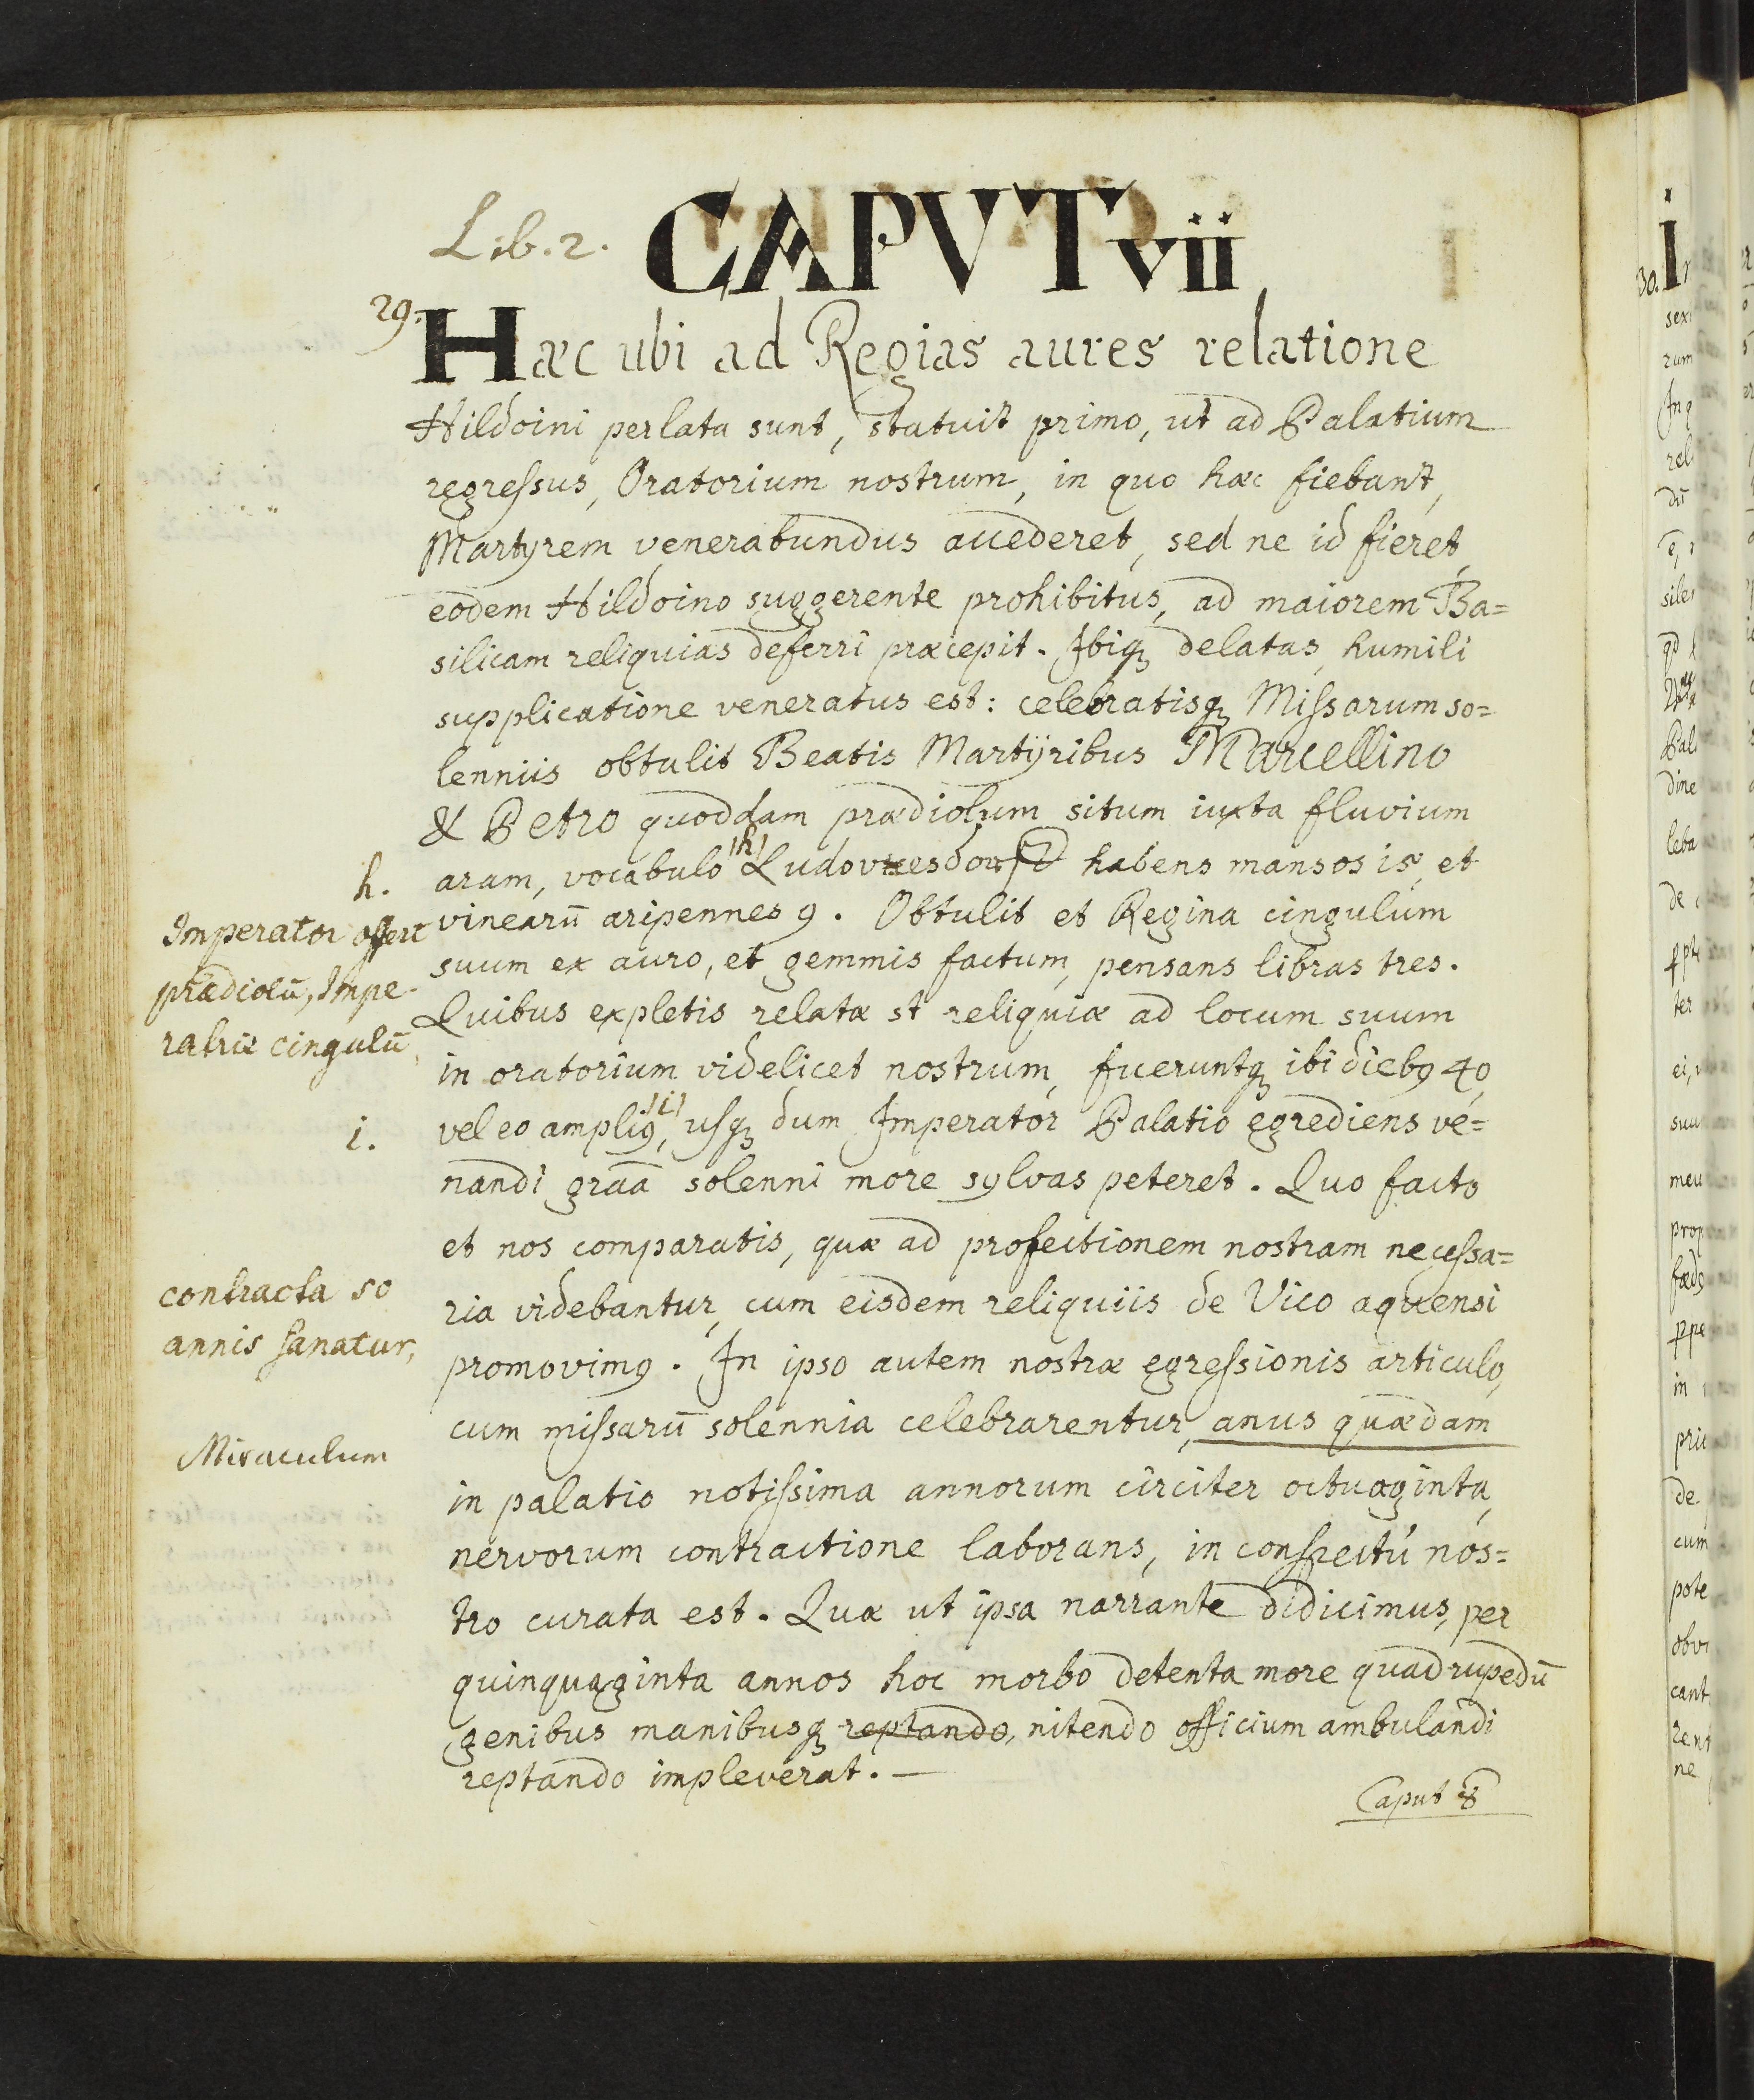 Lib. 2. CAPVT vii
29. Hæc ubi ad Regias aures relatione
Hildoini perlata sunt, statuit primo, ut ad Palatium
regreſsus, Oratorium nostrum, in quo hæc fiebant,
Martyrem venerabundus accederet, sed ne id fieret,
eodem Hildoino suggerente prohibitus, ad maiorem Ba=
silicam reliquias deferri præcepit. Ibiqꝫ delatas, humili
supplicatione veneratus est: celebratisqꝫ Miſsarum so=
lenniis obtulit Beatis Martÿribus Marcellino
& Petro quoddam prædiolum situm iuxta fluvium
h. aram, vocabulo |h| habens mansos 15, et
vinearū aripennes 9. Obtulit et Regina cingulum
suum ex auro, et gemmis factum, pensans libras tres.
Quibus expletis relatæ st reliquiæ ad locum suum
in oratorium videlicet nostrum, fueruntqꝫ ibi diebꝰ 40,
i. vel eo ampliꝰ, |i| uſqꝫ dum Imperator Palatio egrediens ve=
nandi graā solenni more sylvas peteret. Quo facto
et nos comparatis, quæ ad profectionem nostram neceſsa=
ria videbantur, cum eisdem reliquiis de Vico aquensi
promovimꝰ. In ipso autem nostræ egreſsionis articulo,
cum miſsarū solennia celebrarentur, anus quædam
in palatio notiſsima annorum circiter octuaginta,
nervorum contractione laborans, in conſpectu nos=
tro curata est. Quæ ut ipsa narrante didicimus, per
quinquaginta annos hoc morbo detenta more quadrupedū
genibus manibusqꝫ reptando, nitendo officium ambulandi
reptando impleverat. —
Caput 8
Imperator offert
prædiolū, Impe-
ratrix cingulū
contracta 50
annis ſanatur,
Miraculum